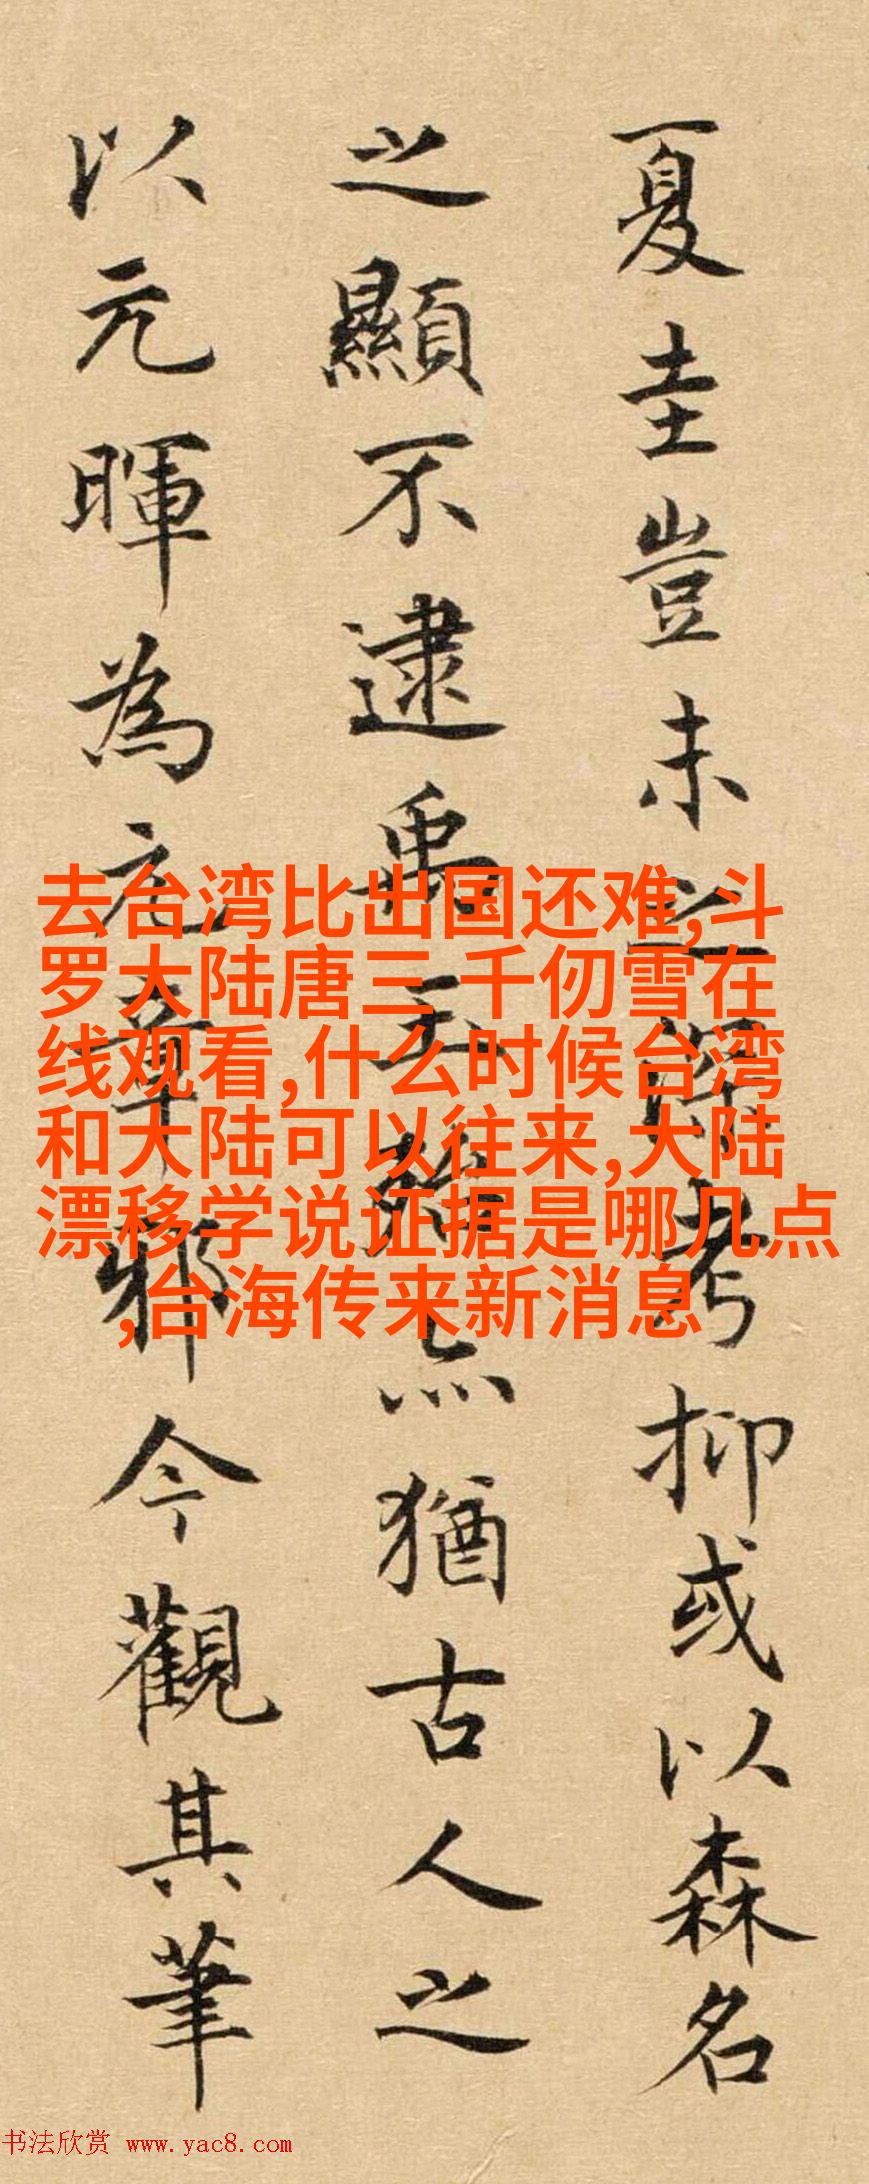 夏圭豈未之深考抑或以森名
之顯不逮禹玉猶古人之
以元暉為元章邪今觀其筆
去台湾比出国还难,斗
罗大陆唐三 千仞雪在
线观看,什么时候台湾
和大陆可以往来,大陆
漂移学说证据是哪几点
,台海传来新消息
书法欣赏 www.yac8.com